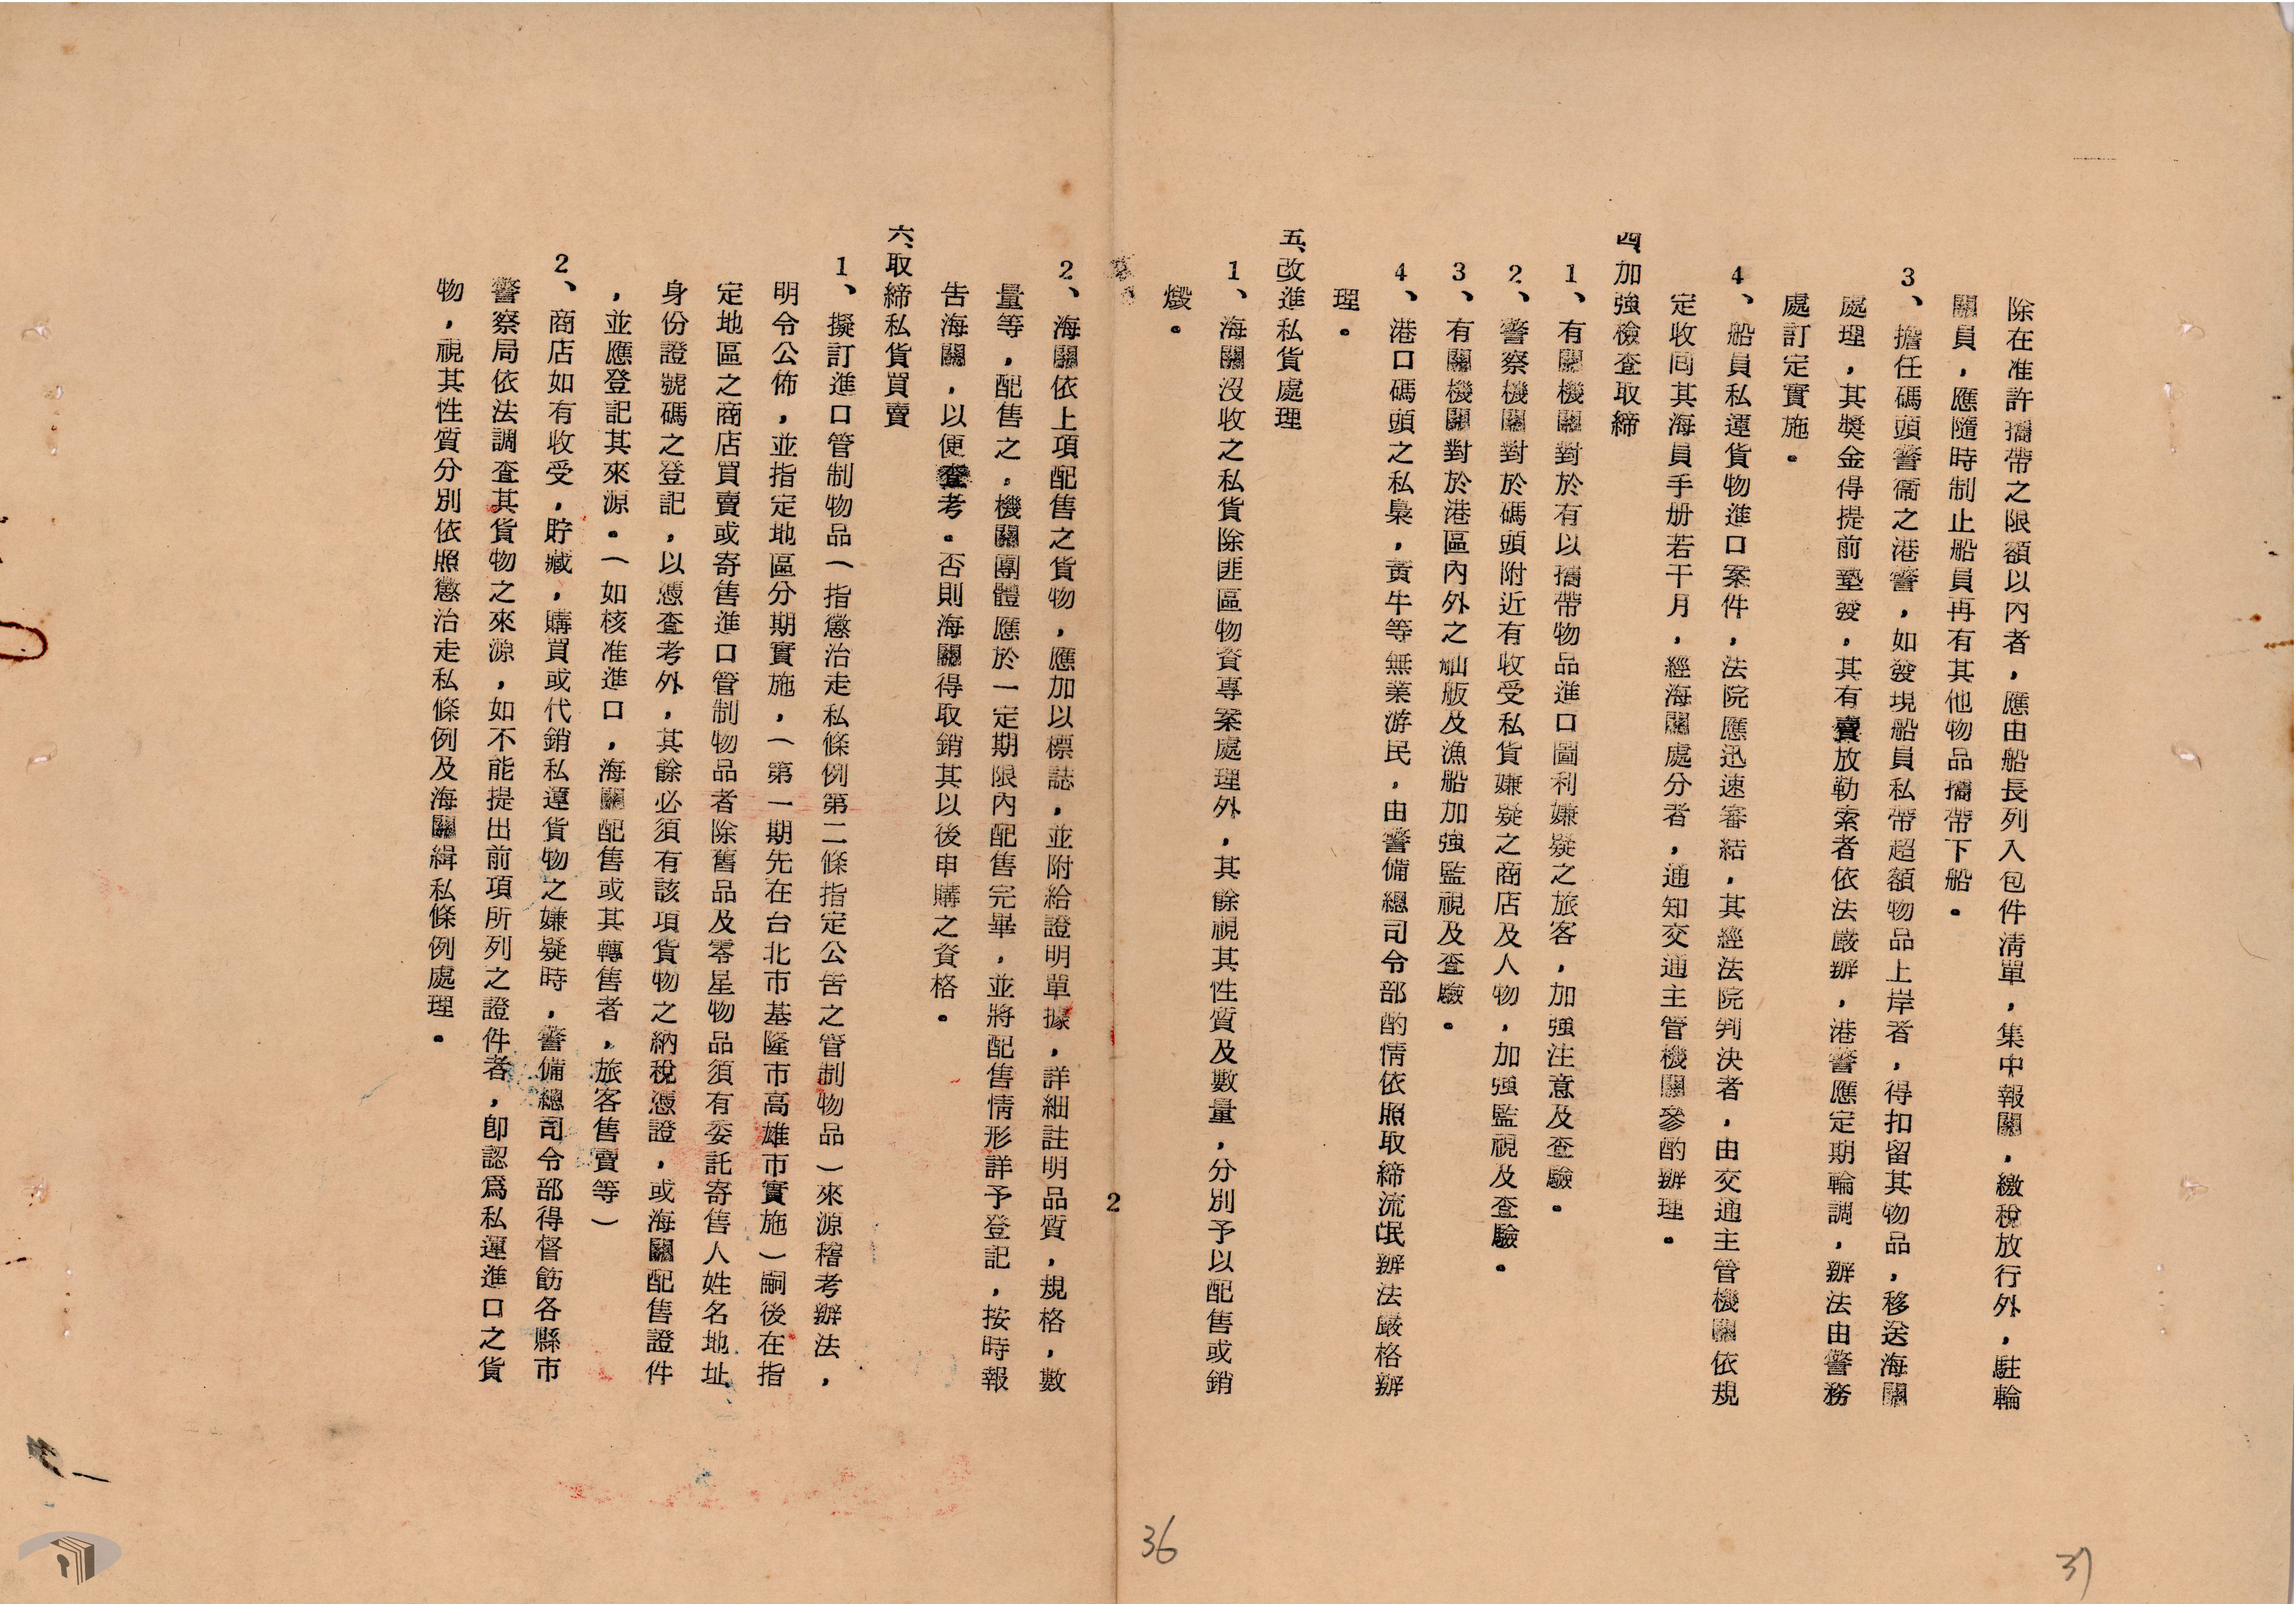 除在准許攜帶之限額以內者，應由船長列入包件清單，集中報關，繳稅放行外，駐輪
關員，應隨時制止船員再有其他物品攜帶下船。
3、擔任碼頭警衞之港警，如發現船員私帶超額物品上岸者，得扣留其物品，移送海關
處理，其獎金得提前墊發，其有賣放勒索者依法嚴辦，港警應定期輪調，辦法由警務
處訂定實施。
4、船員私運貨物進口案件，法院應迅速審結，其經法院判決者，由交通主管機關依規
定收回其海員手册若干月，經海關處分者，通知交通主管機關參酌辦理。
四、加強檢查取締
1、有關機關對於有以攜帶物品進口圖利嫌疑之旅客，加強注意及查驗。
2、警察機關對於碼頭附近有收受私貨嫌疑之商店及人物，加強監視及查驗。
3、有關機關對於港區內外之舢舨及漁船加強監視及查驗。
4、港口碼頭之私梟，黃牛等無業游民，由警備總司令部酌情依照取締流氓辦法嚴格辦
理。
五、改進私貨處理
1、海關沒收之私貨除匪區物資專案處理外，其餘視其性質及數量，分別予以配售或銷
燬。
2
2、海關依上項配售之貨物，應加以標誌，並附給證明單據，詳細註明品質，規格，數
量等，配售之。機關團體應於一定期限內配售完畢，並將配售情形詳予登記，按時報
告海關，以便查考。否則海關得取銷其以後申購之資格。
六、取締私貨買賣
1、擬訂進口管制物品（指懲治走私條例第二條指定公告之管制物品）來源稽考辦法，
明令公佈，並指定地區分期實施，（第一期先在台北市基隆市高雄市實施）嗣後在指
定地區之商店買賣或寄售進口管制物品者除舊品及零星物品須有委託寄售人姓名地址、
身份證號碼之登記，以憑查考外，其餘必須有該項貨物之納稅憑證，或海關配售證件
，並應登記其來源。（如核准進口，海關配售或其轉售者，旅客售賣等）
2、商店如有收受，貯藏，購買或代銷私運貨物之嫌疑時，警備總司令部得督飭各縣市
警察局依法調查其貨物之來源，如不能提出前項所列之證件者，卽認爲私運進口之貨
物，視其性質分別依照懲治走私條例及海關緝私條例處理。
36
37